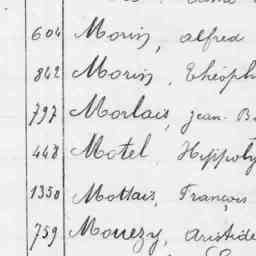 604 Morin, Alfred
842 Morin, Théoph
797 Morlais, Jean-B
448 Motel, Hippoly
1350 Mottais, François
759 Mouezy, Aristide